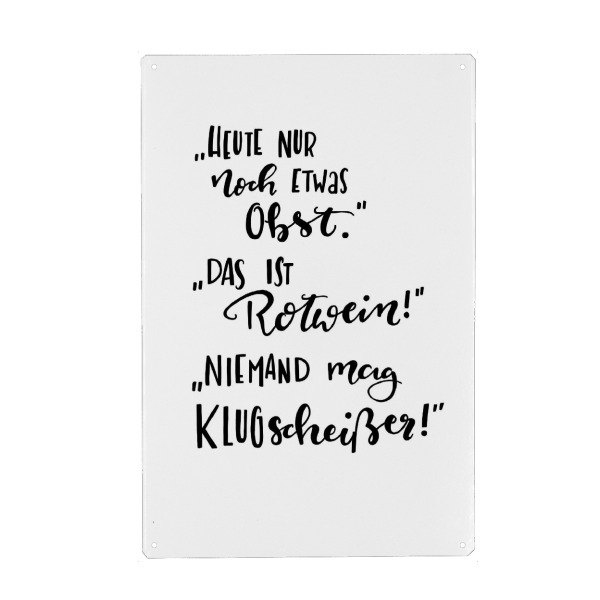 „HEUTE NUR
noch ETWAS
Obst.“
„DAS IST
Rotwein!“
„NIEMAND mag
KLUGscheißer!“